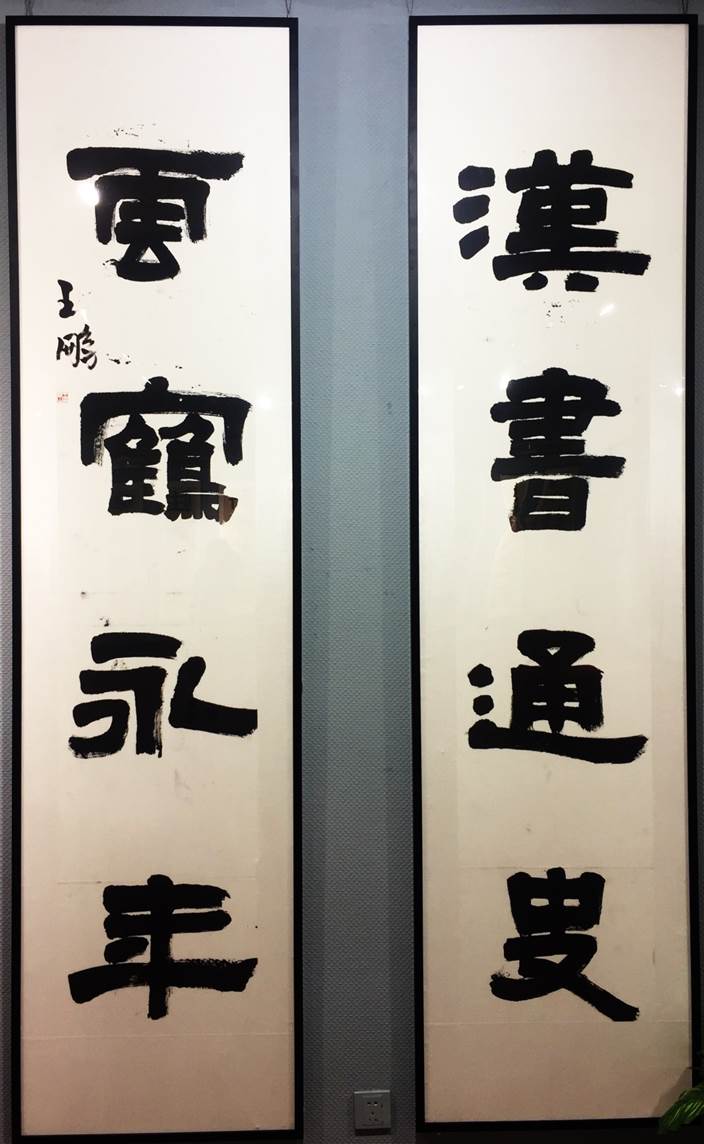 漢書通叟
雲鶴永年
王鵬